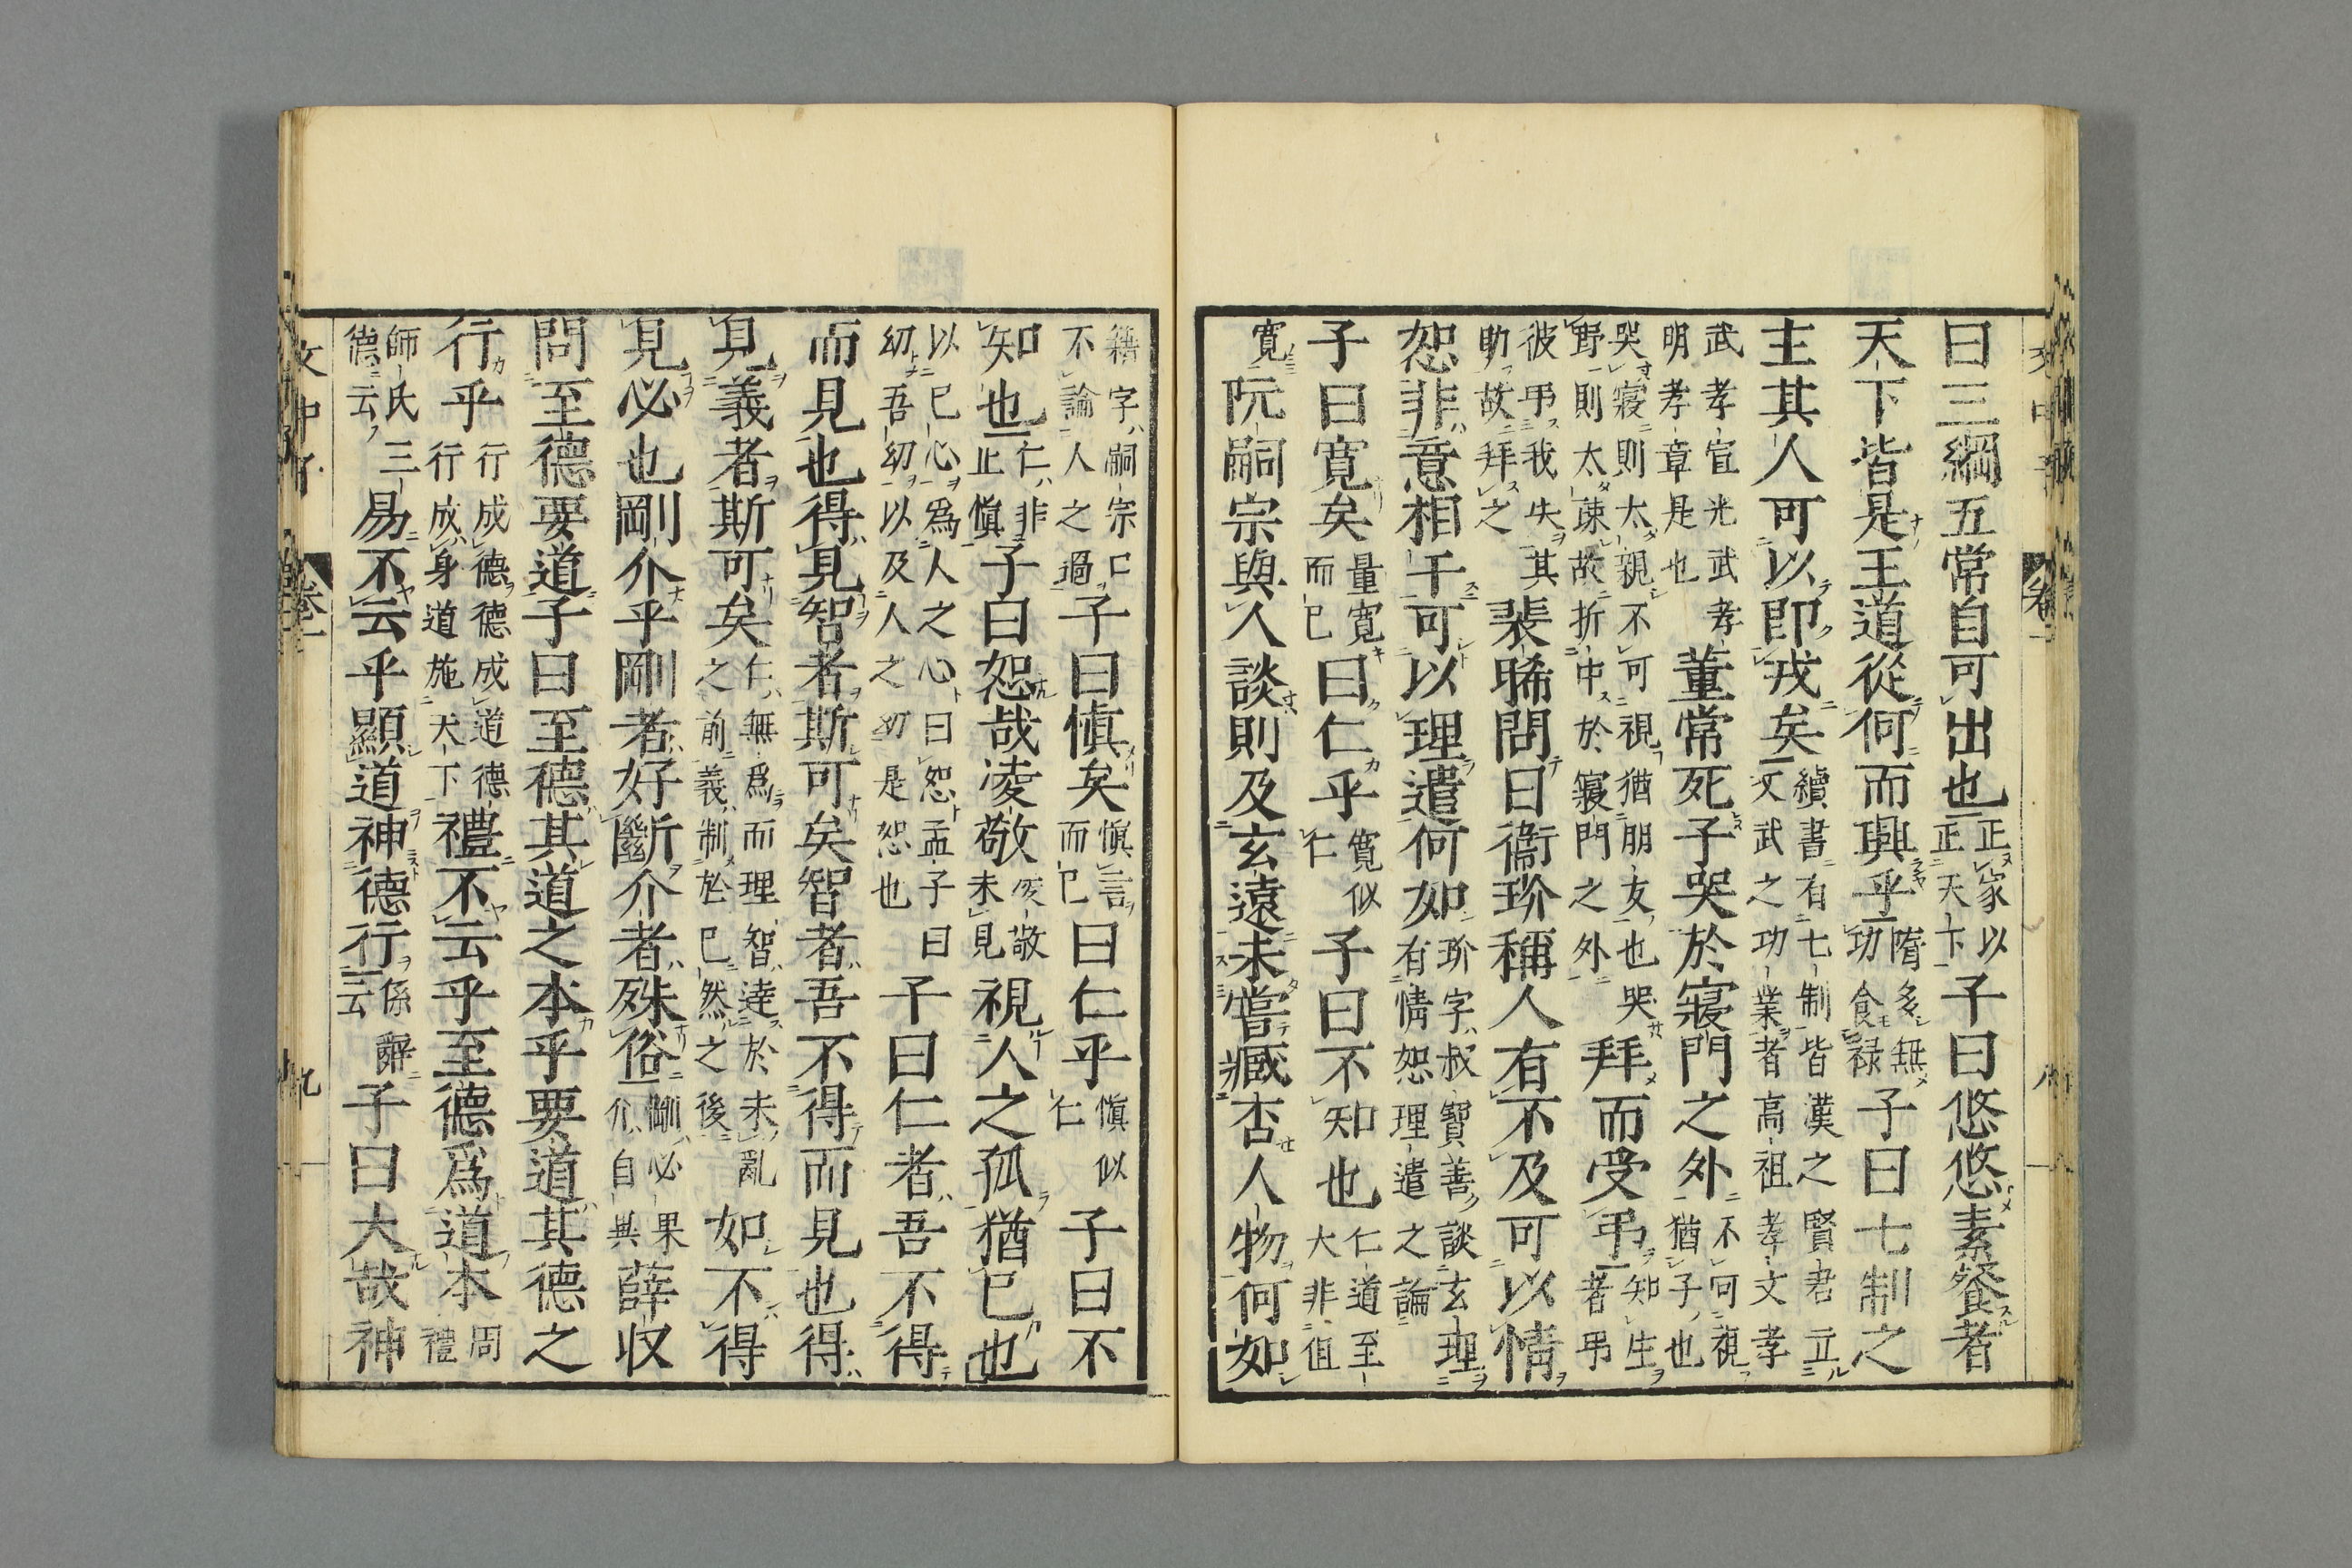 曰三綱五常自可出也正家以正天下子曰悠悠素餐者
天下皆是王道從何而興乎隋多無功食祿子曰七制之
主其人可以即戎矣續書有七制皆漢之賢君立文武之功業者高祖孝文孝
武孝宣光武孝明孝章是也董常死子哭於寢門之外不可視猶子也
哭寢則太親不可視猶朋友也哭野則太疎故折中於寢門之外拜而受弔知生者弔
彼弔我失其助故拜之裴晞問曰衞玠稱人有不及可以情
恕非意相干可以理遣何如玠字叔寶善談玄理有情恕理遣之論
子曰寬矣量寬而已曰仁乎寬似仁子曰不知也仁道至大非徂
寬阮嗣宗與人談則及玄遠未嘗臧否人物何如
籍字嗣宗口不論人之過子曰愼矣愼言而已曰仁乎愼似仁子曰不
知也仁非止愼子曰恕哉凌敬凌敬未見視人之孤猶已也
以已心爲人之心曰恕孟子曰幼吾幼以及人之幼是恕也子曰仁者吾不得
而見也得見智者斯可矣智者吾不得而見也得
見義者斯可矣仁無爲而理智達於未亂之前義制於已然之後如不得
見必也剛介乎剛者好斷介者殊俗剛必果介自與薛收
問至德要道子曰至德其道之本乎要道其德之
行乎行成德德成道德行成身道施天下禮不云乎至德爲道本周禮
師氏三德云易不云乎顯道神德行係辭云子曰大哉神
文中子 卷一 八
文中子 卷一 九